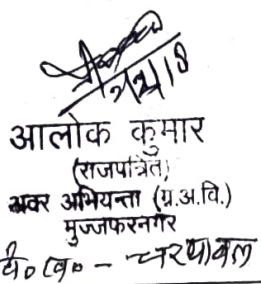 आलोक कुमार
(राजपत्रित)
अवर अभियन्ता (ग्र.अ.वि.)
मुज्जफरनगर
वि० ख० - चरथावल